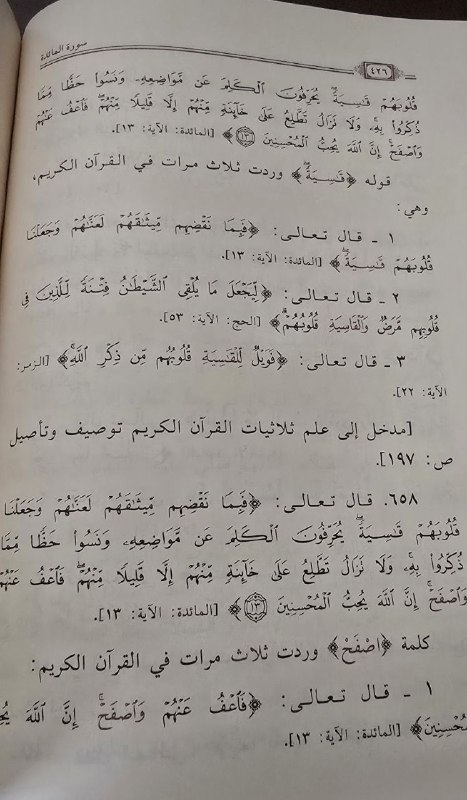 سورة المائدة
٤٢٦
قُلُوبَهُمْ قَٰسِيَةً يُحَرِّفُونَ ٱلْكَلِمَ عَن مَّوَاضِعِهِۦ وَنَسُوا۟ حَظًّا مِّمَّا
ذُكِّرُوا۟ بِهِۦ وَلَا تَزَالُ تَطَّلِعُ عَلَىٰ خَآئِنَةٍ مِّنْهُمْ إِلَّا قَلِيلًا مِّنْهُمْ فَٱعْفُ عَنْهُمْ
وَٱصْفَحْ إِنَّ ٱللَّهَ يُحِبُّ ٱلْمُحْسِنِينَ ١٣﴾ [المائدة: الآية: ١٣].
قوله ﴿قَٰسِيَةً﴾ وردت ثلاث مرات في القرآن الكريم،
وهي:
١ - قال تعالى: ﴿فَبِمَا نَقْضِهِم مِّيثَٰقَهُمْ لَعَنَّٰهُمْ وَجَعَلْنَا
قُلُوبَهُمْ قَٰسِيَةً﴾ [المائدة: الآية: ١٣].
٢ - قال تعالى: ﴿لِّيَجْعَلَ مَا يُلْقِى ٱلشَّيْطَٰنُ فِتْنَةً لِّلَّذِينَ فِى
قُلُوبِهِم مَّرَضٌ وَٱلْقَاسِيَةِ قُلُوبُهُمْ﴾ [الحج: الآية: ٥٣].
٣ - قال تعالى: ﴿فَوَيْلٌ لِّلْقَٰسِيَةِ قُلُوبُهُم مِّن ذِكْرِ ٱللَّهِ﴾ [الزمر:
الآية: ٢٢].
[مدخل إلى علم ثلاثيات القرآن الكريم توصيف وتأصيل
ص: ١٩٧].
٦٥٨. قال تعالى: ﴿فَبِمَا نَقْضِهِم مِّيثَٰقَهُمْ لَعَنَّٰهُمْ وَجَعَلْنَا
قُلُوبَهُمْ قَٰسِيَةً يُحَرِّفُونَ ٱلْكَلِمَ عَن مَّوَاضِعِهِۦ وَنَسُوا۟ حَظًّا مِّمَّا
ذُكِّرُوا۟ بِهِۦ وَلَا تَزَالُ تَطَّلِعُ عَلَىٰ خَآئِنَةٍ مِّنْهُمْ إِلَّا قَلِيلًا مِّنْهُمْ فَٱعْفُ عَنْهُمْ
وَٱصْفَحْ إِنَّ ٱللَّهَ يُحِبُّ ٱلْمُحْسِنِينَ ١٣﴾ [المائدة: الآية: ١٣].
كلمة ﴿اصْفَحْ﴾ وردت ثلاث مرات في القرآن الكريم:
١ - قال تعالى: ﴿فَٱعْفُ عَنْهُمْ وَٱصْفَحْ إِنَّ ٱللَّهَ
ٱلْمُحْسِنِينَ﴾ [المائدة: الآية: ١٣].